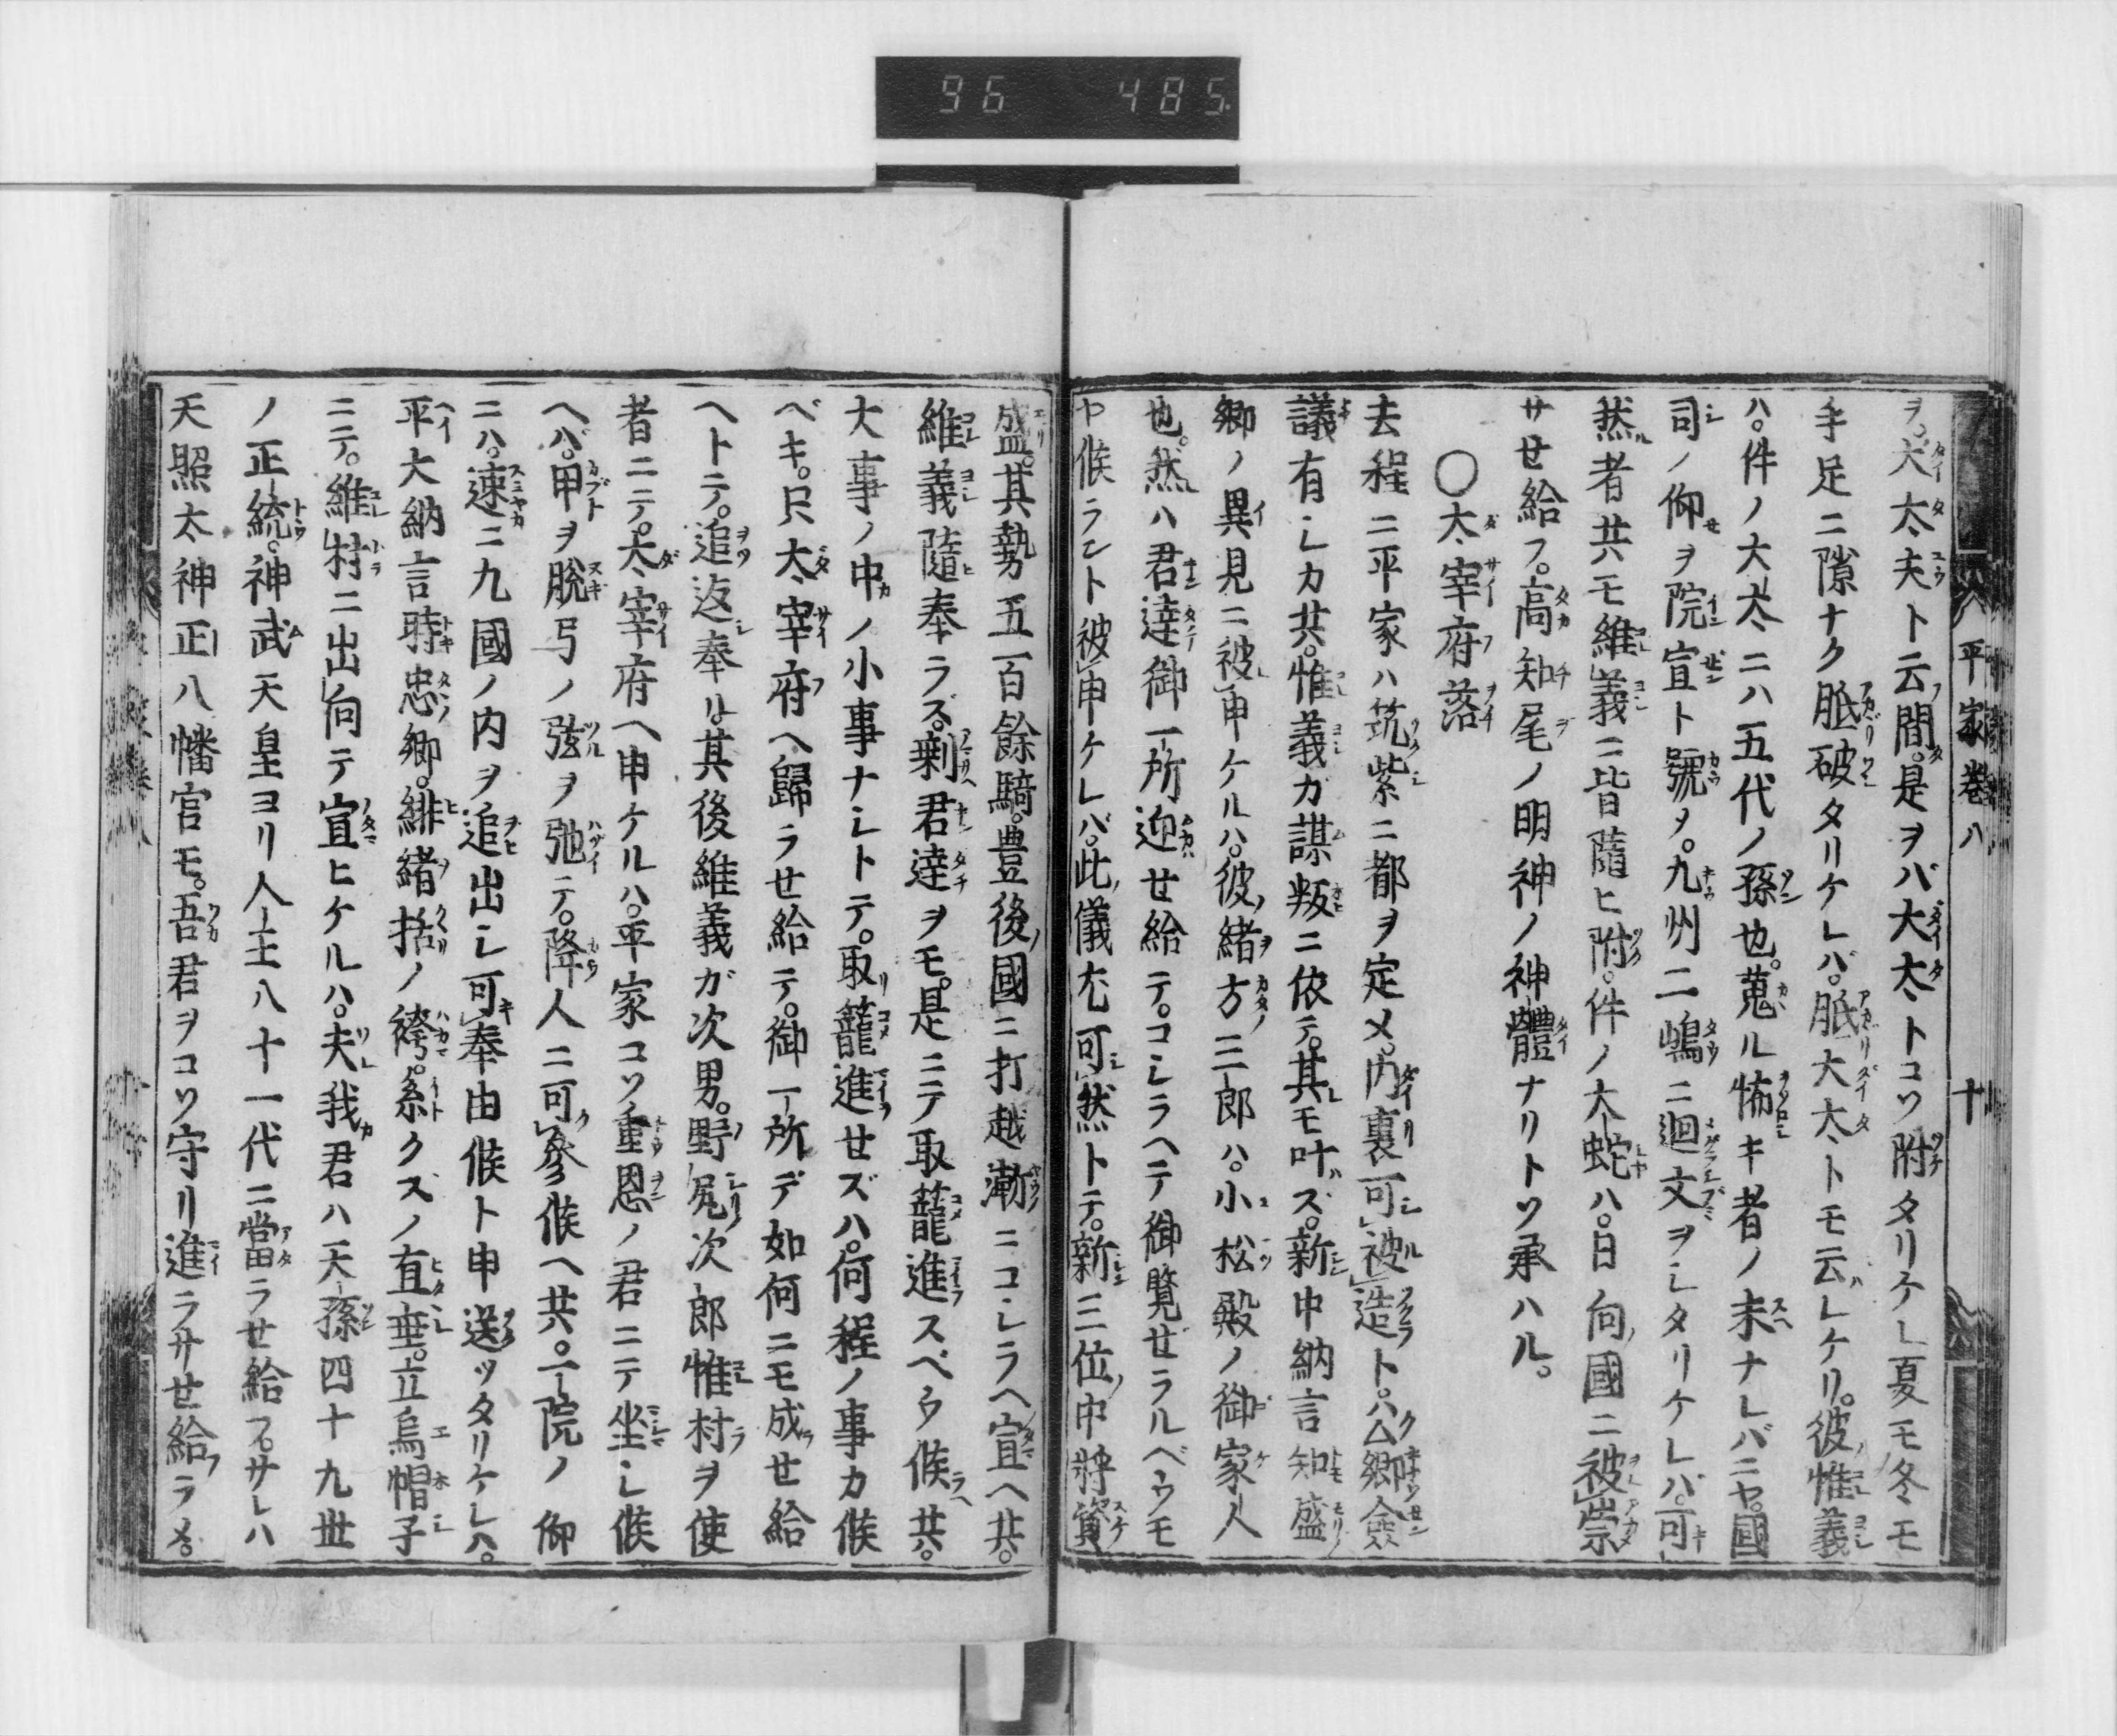 96 485
平家巻八 十
ヲ。大太夫ト云間。是ヲバ大太トコソ附タリケレ夏モ冬モ
手足ニ隙ナク胝破タリケレバ。胝大太トモ云レケリ。彼惟義
ハ。件ノ大太ニハ五代ノ孫也。蒐ル怖キ者ノ末ナレバニヤ。國
司ノ仰ヲ院宣ト號メ。九州二嶋ニ迴文ヲシタリケレバ。可
然者共モ維義ニ皆隨ヒ附。件ノ大蛇ハ。日向國ニ被崇
サセ給フ。高知尾ノ明神ノ神體ナリトソ承ハル。
〇太宰府落
去程ニ平家ハ筑紫ニ都ヲ定メ。内裏可被造ト。公卿僉
議有シカ共。惟義ガ謀叛ニ依テ。其モ叶ズ。新中納言知盛
卿ノ異見ニ被申ケルハ。彼緒方三郎ハ。小松殿ノ御家人
也。然ハ君達御一所迎セ給テ。コシラヘテ御覽ゼラルベウモ
ヤ候ラント被申ケレバ。此儀尤可然トテ。新三位中將資
盛。其勢五百餘騎。豊後國ニ打越漸ニコシラヘ宣ヘ共。
維義隨奉ラズ。剰君達ヲモ。是ニテ取籠進スベウ候ヘ共。
大事ノ中ノ小事ナシトテ。取籠進セズハ。何程ノ事カ候
ベキ。只太宰府ヘ歸ラセ給テ。御一所デ如何ニモ成セ給
ヘトテ。追返奉ル。其後維義ガ次男。野尻次郎惟村ヲ使
者ニテ。太宰府ヘ申ケルハ。平家コソ重恩ノ君ニテ坐シ候
ヘバ。甲ヲ脱弓ノ弦ヲ弛テ。降人ニ可參候ヘ共。一院ノ仰
ニハ。速ニ九國ノ内ヲ追出シ可奉由候ト申送ッタリケレハ。
平大納言時忠卿。緋緒括ノ袴。糸クズノ直垂。立烏帽子
ニテ。維村ニ出向テ宣ヒケルハ。夫我君ハ天孫四十九世
ノ正統。神武天皇ヨリ人王八十一代ニ當ラセ給フ。サレハ
天照太神正八幡宮モ。吾君ヲコソ守リ進ラサセ給ラメ。